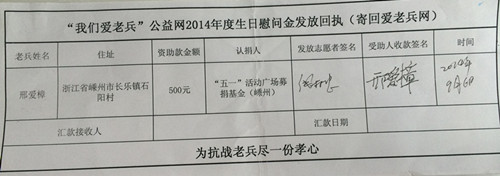 “我们爱老兵”公益网2014年度生日慰问金发放回执（寄回爱老兵网）
老兵姓名 住址 资助款金额 认捐人 发放志愿者签名 受助人收款签名 时间
邢爱樟 浙江省嵊州市长乐镇石阳村 500元 “五一”活动广场募捐基金（嵊州） 邢爱樟 2014年9月6日
汇款接收人 汇款日期
为抗战老兵尽一份孝心